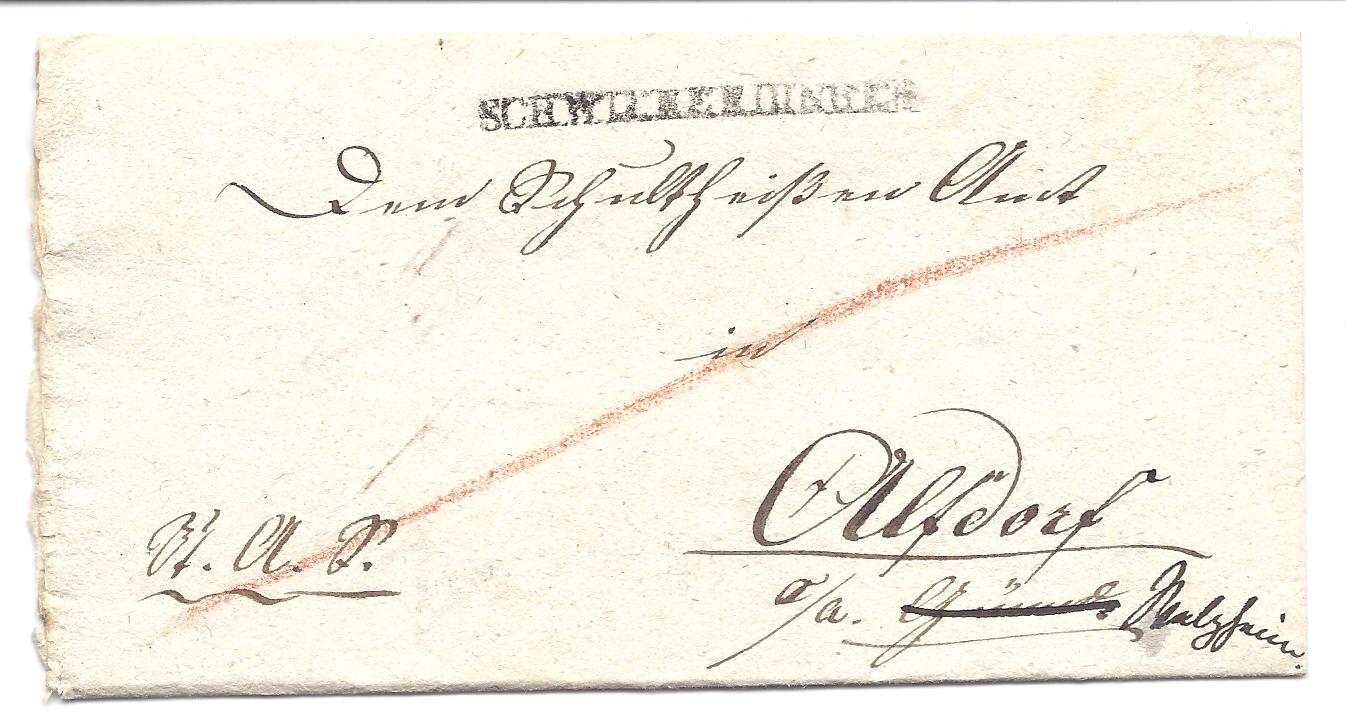 SCHWIEBERDINGEN
Dem Schultheißen Amt
in
Alfdorf
o/a. Gmünd. Welzheim.
A. S.